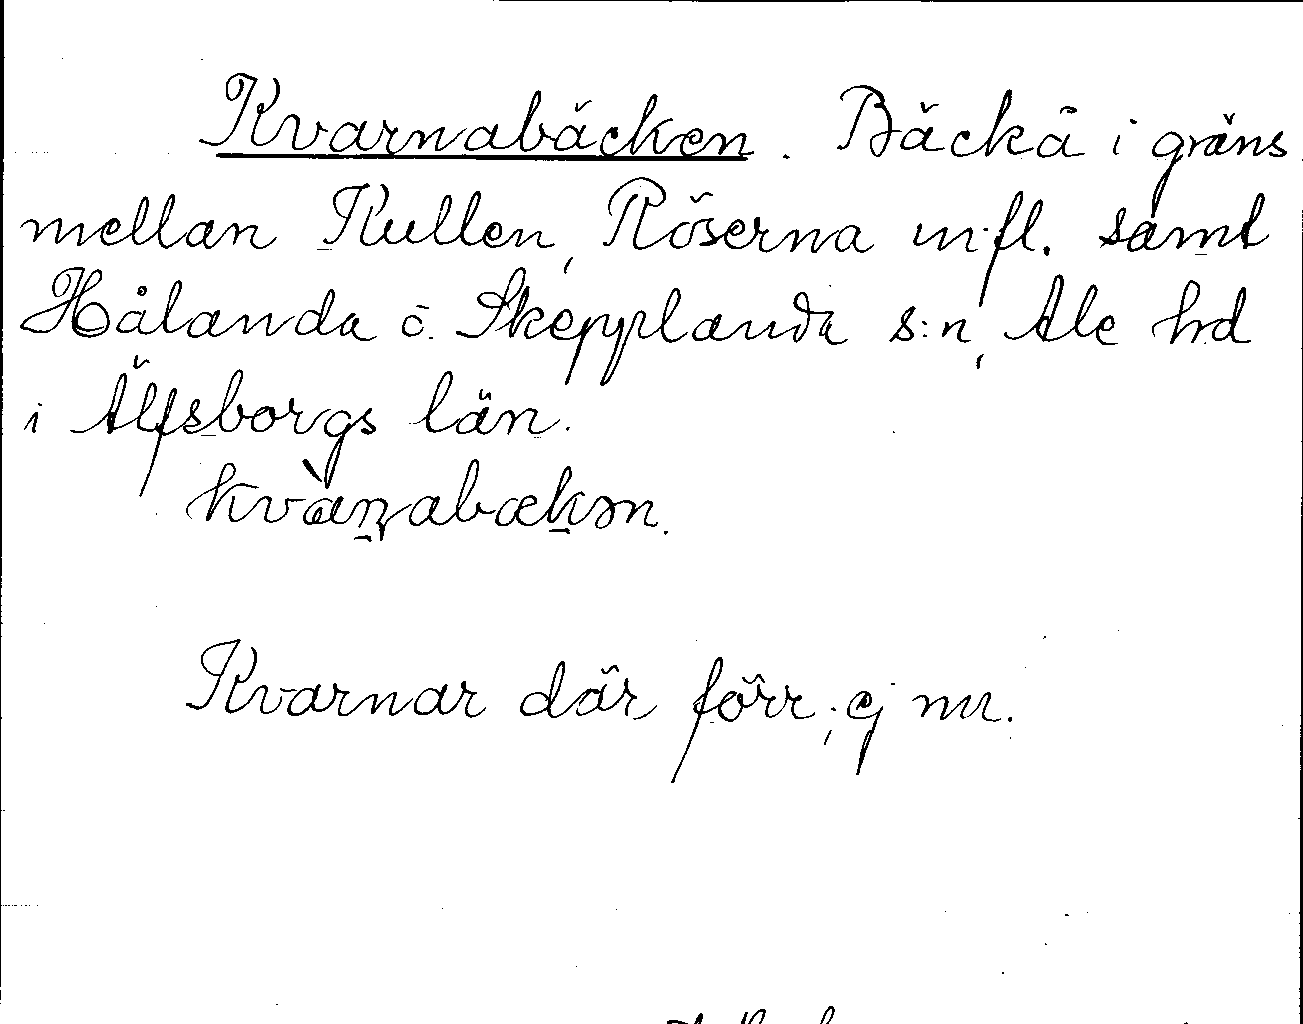 Kvarnabäcken. Bäckå i gräns
mellan Kullen, Röserna m.fl. samt
Hålanda o. Skepplanda s:n, Ale hrd
i Älfsborgs län.
kvàn̥abækən.
Kvarnar där förr; ej nu.